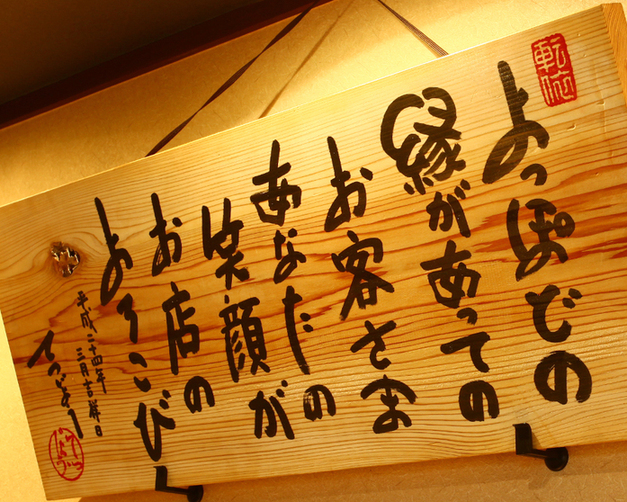 よっぽどの
縁があっての
お客さま
あなたの
笑顔が
お店の
よろこび
平成二十四年
三月吉祥日